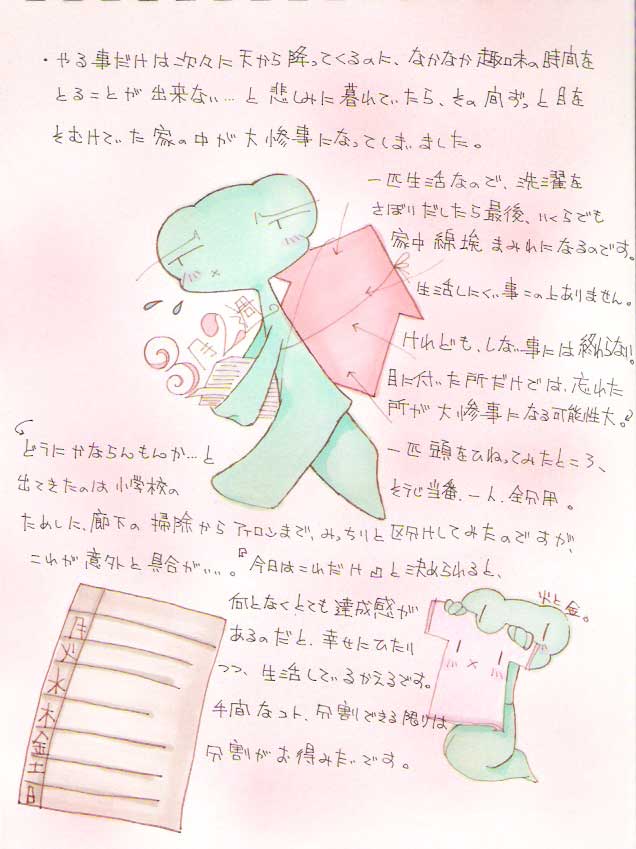 ・やる事だけは次々に天から降ってくるのに、なかなか趣味の時間を
とることが出来ない…と悲しみに暮れていたら、その間ずっと目を
そむけていた家の中が大惨事になってしまいました。
一匹生活なので、洗濯を
さぼりだしたら最後、いくらでも
家中綿埃まみれになるのです。
生活しにくい事この上ありません。
けれども、しない事には終わらない。
目に付いた所だけでは、忘れた
所が大惨事になる可能性大。
どうにかならんもんか…と
一匹頭をひねってみたところ、
出てきたのは小学校の
そうじ当番、一人、全分用。
ためしに、廊下の掃除からアイロンまで、みっちりと区分けしてみたのですが、
これが意外と具合がいい。『今日はこれだけ』と決められると、
何となくとても達成感が
あるのだと、幸せにひたり
つつ、生活しているかえるです。
手間なコト、分割できる限りは
分割がお得みたいです。
火と金。
月
火
水
木
金
土
日